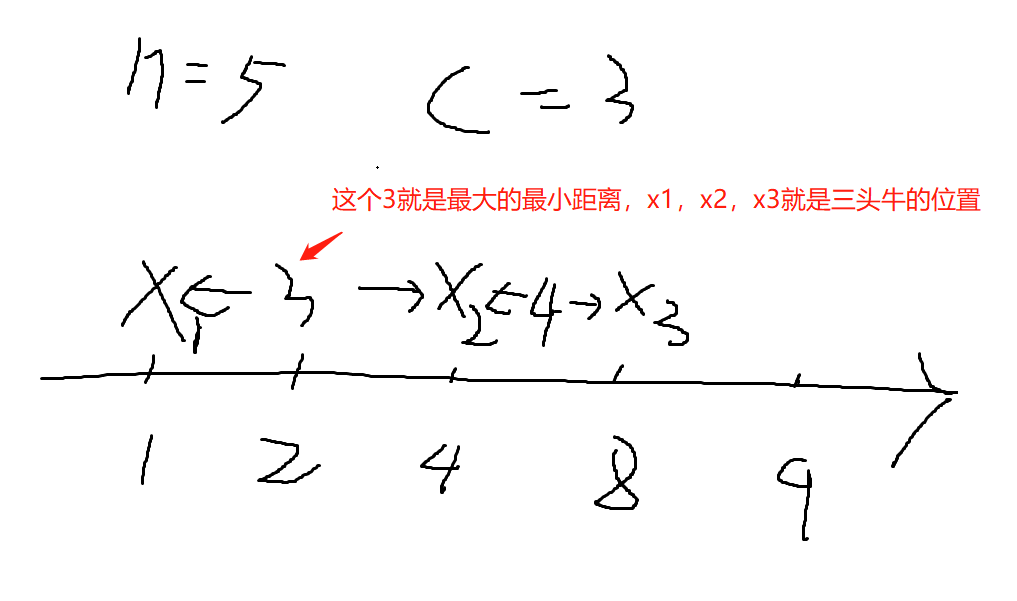 n=5 C=3
这个3就是最大的最小距离，x1，x2，x3就是三头牛的位置
X1 ← 3 → X2 ← 4 → X3
1 2 4 8 9